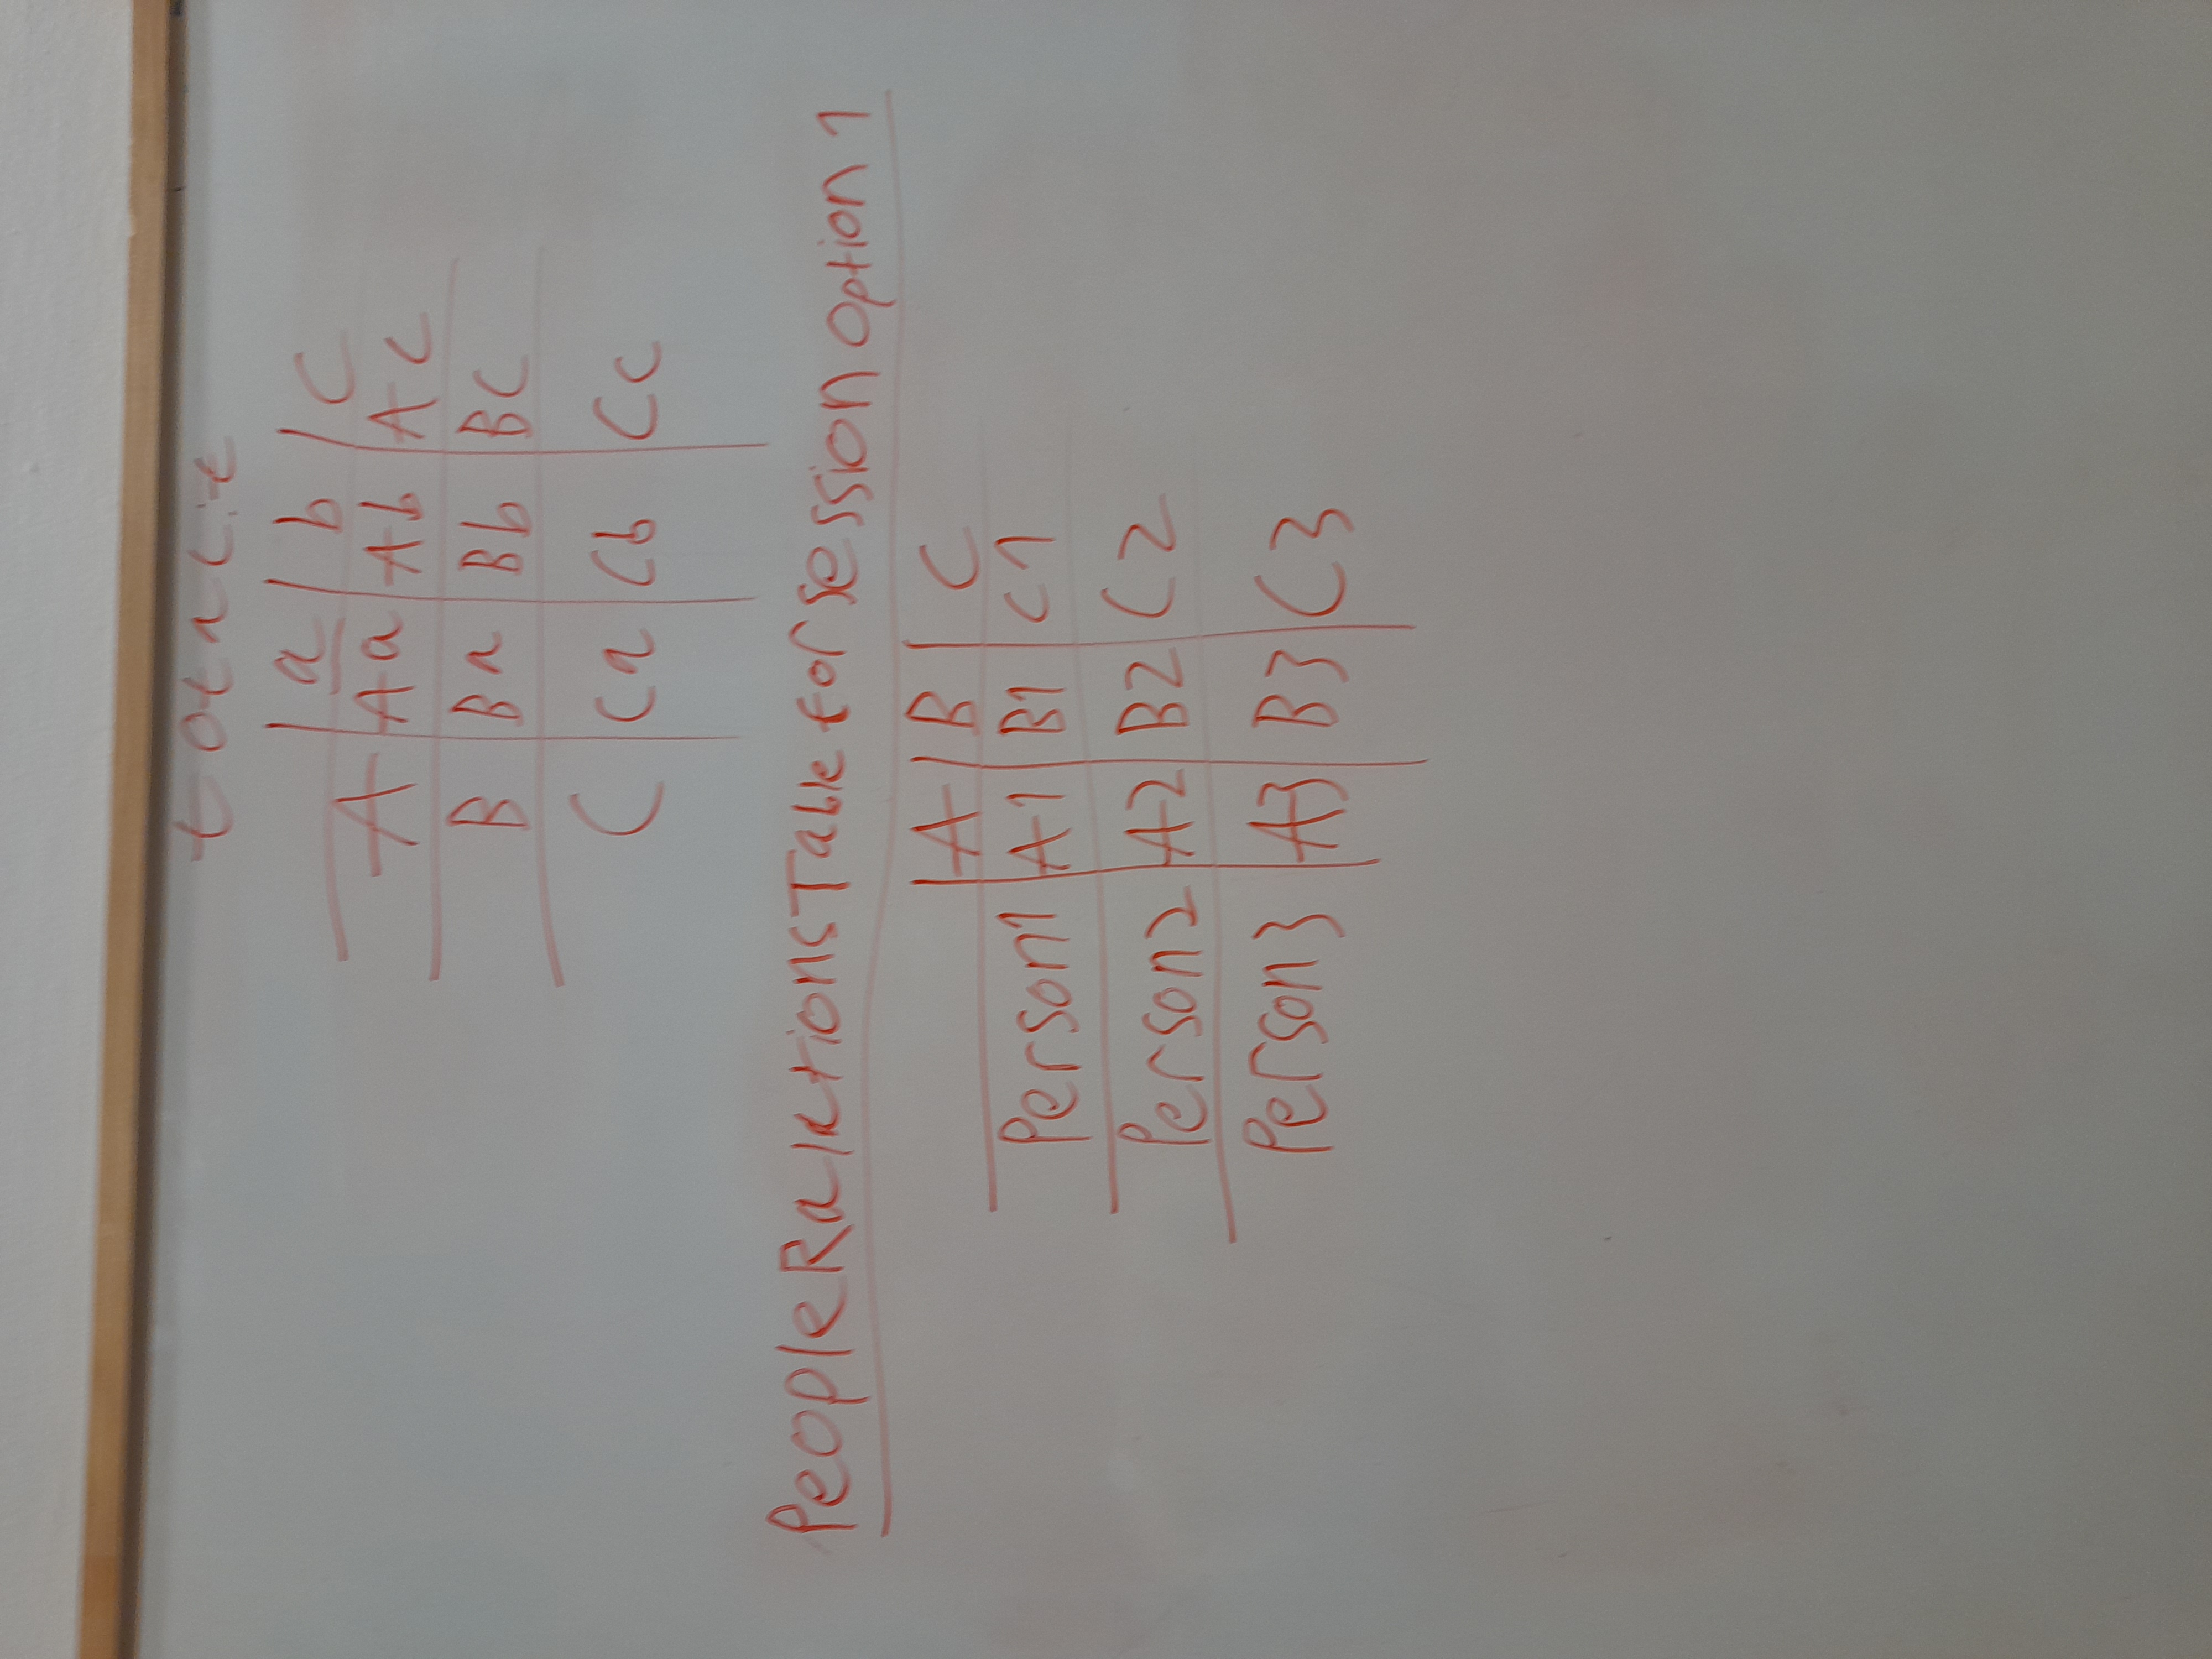 a b C
A Aa Ab Ac
B Ba Bb BC
C Ca Cb Cc
PeopleRalationsTable for session option 1
A B C
Person1 A1 B1 C1
Person2 A2 B2 C2
Person3 A3 B3 C3